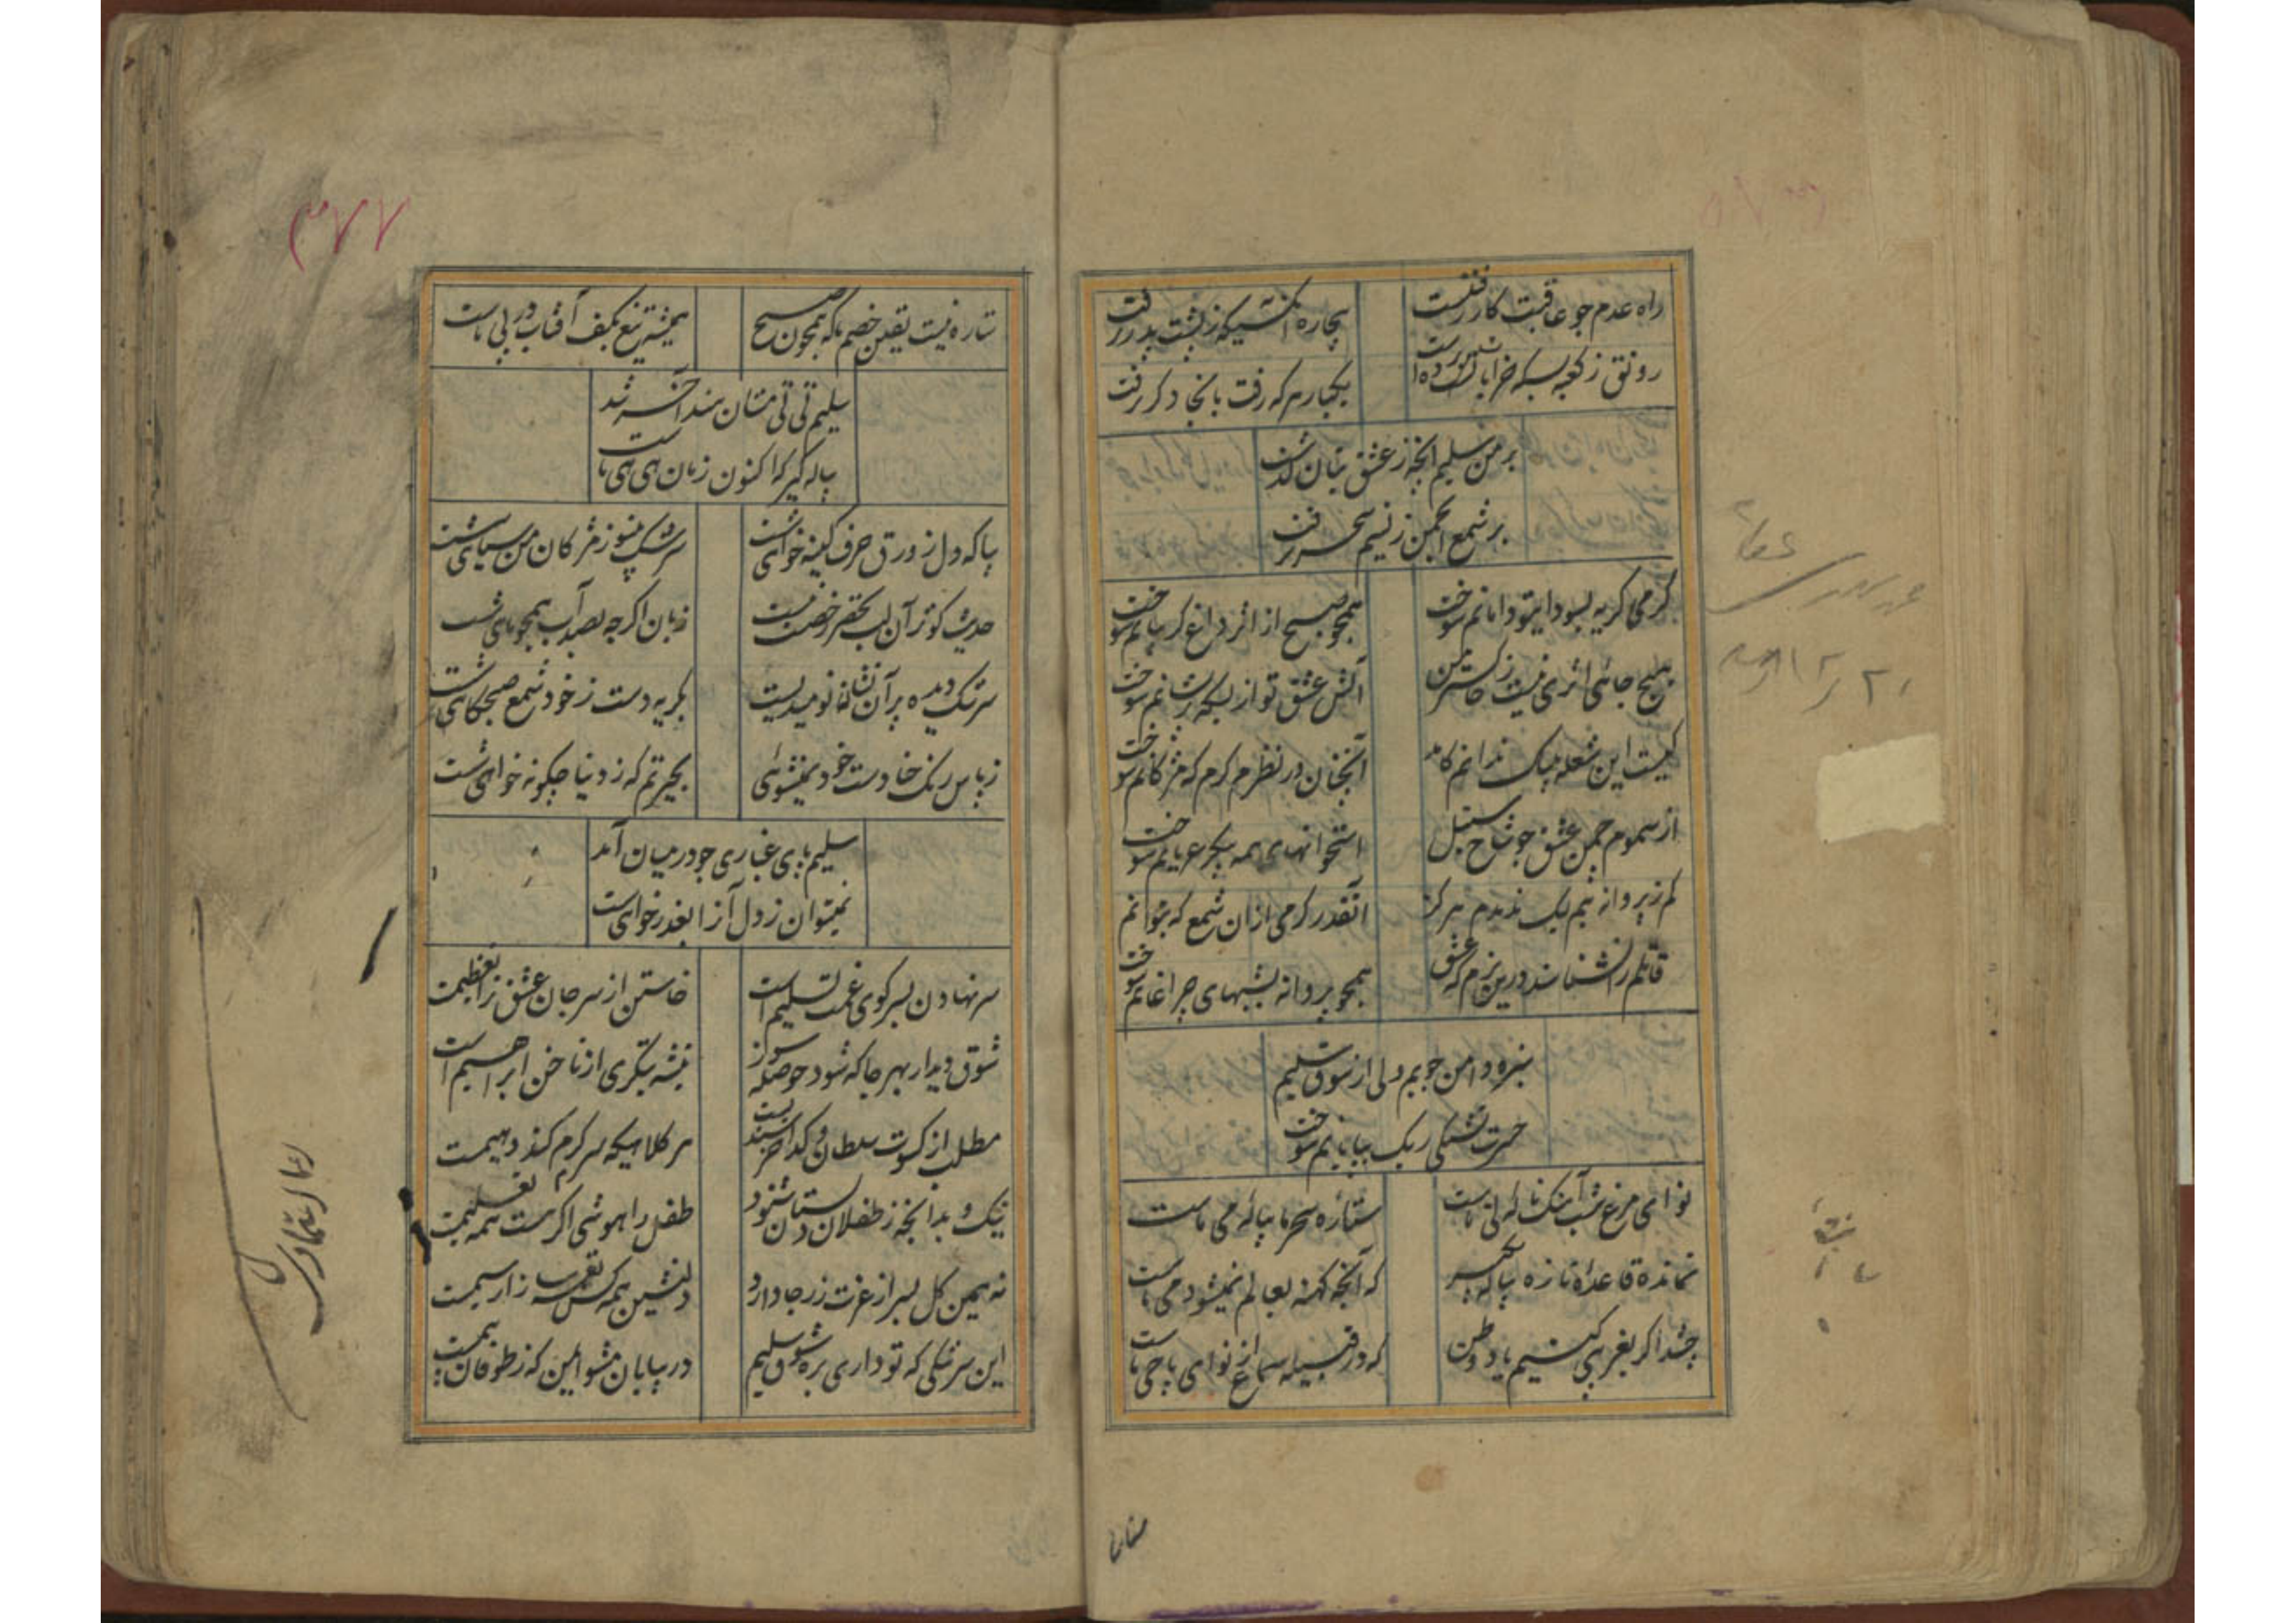 راه عدم چو عاقبت کار رفتنست
بیچاره آنکسیکه ز پشت پدر رفت
رونق ز کعبه بسکه خرابات برده است
یکبار هر که رفت بانجا دگر نرفت
بر من سلیم آنچه ز عشق بتان گذشت
بر شمع انجمن ز نسیم سحر نرفت
گرمی گریه بسودای تو دامانم سوخت
همچو صبح از اثر داغ گریبانم سوخت
هیچ جائی اثری نیست ز خاکستر من
آتش عشق تو از بسکه پریشانم سوخت
کیست این شعله بیباک ندانم کامد
آنچنان در نظرم گرم که مژگانم سوخت
از سموم چمن عشق چو شاخ سنبل
استخوانهای همه پیکر عریانم سوخت
کم ز پروانه نیم لیک ندیدم هرگز
آنقدر گرمی ازان شمع که بتوانم سوخت
قاتلم را نشناسند درین بزم که عشق
همچو پروانه بشبهای چراغانم سوخت
سبزه دامن جویم دلی از شوق سلیم
حسرت تشنگی ریگ بیابانم سوخت
نوای مرغ شب آهنگ ناله نی ماست
ستاره سحر ما پیاله می ماست
نمانده قاعده تازه پیاله بگیر
که آنچه کهنه بعالم نمیشود می ماست
چشد اگر بغریبی کنیم یاد وطن
که در قبیله سماع از نوای یا حی ماست
ستاره
۳۷۷
ستاره نیست یقین خصم ما که همچون صبح
همیشه تیغ بکف آفتاب در پی ماست
سلیم تی تی مستان هند آخر شد
پیاله گیر که اکنون زمان هی هی ماست
بیا که دل ز ورق حرف کینه خواهی شست
سرشک هنوز ز مژگان من سیاهی شست
حدیث کوثر آن لب بحقیر رخصت نیست
زبان اگر چه بصد آب همچو ماهی شست
سرشک دیده بر آن نشانه نومیدیست
بگریه دست ز خود شمع صبحگاهی شست
ز پاس رنگ حنا دست خود نمیشوئی
بحیرتم که ز دنیا چگونه خواهی شست
سلیم پای غباری چو در میان آمد
نمیتوان ز دل آنرا بعذرخواهی شست
سر نهادن بسر کوی غمت تسلیم است
خاستن از سر جان عشق ترا تعظیمست
شوق دیدار بهر جا که شود حوصله سوز
تیشه بتگری از ناخن ابراهیم است
مطلب از کسوت سلطان و گدا خرسندیست
هر کلاهیکه سر گرم کند دیهیمست
نیک و بد آنچه ز طفلان دبستان شنود
طفل را هوشی اگر هست همه تعلیمست
نه همین گل بسر از عزت زر جا دارد
دلنشین همه کس نقش سه زار سیمست
این سرشکی که تو داری بره شوق سلیم
در بیابان مشو ایمن که ز طوفان بیمست